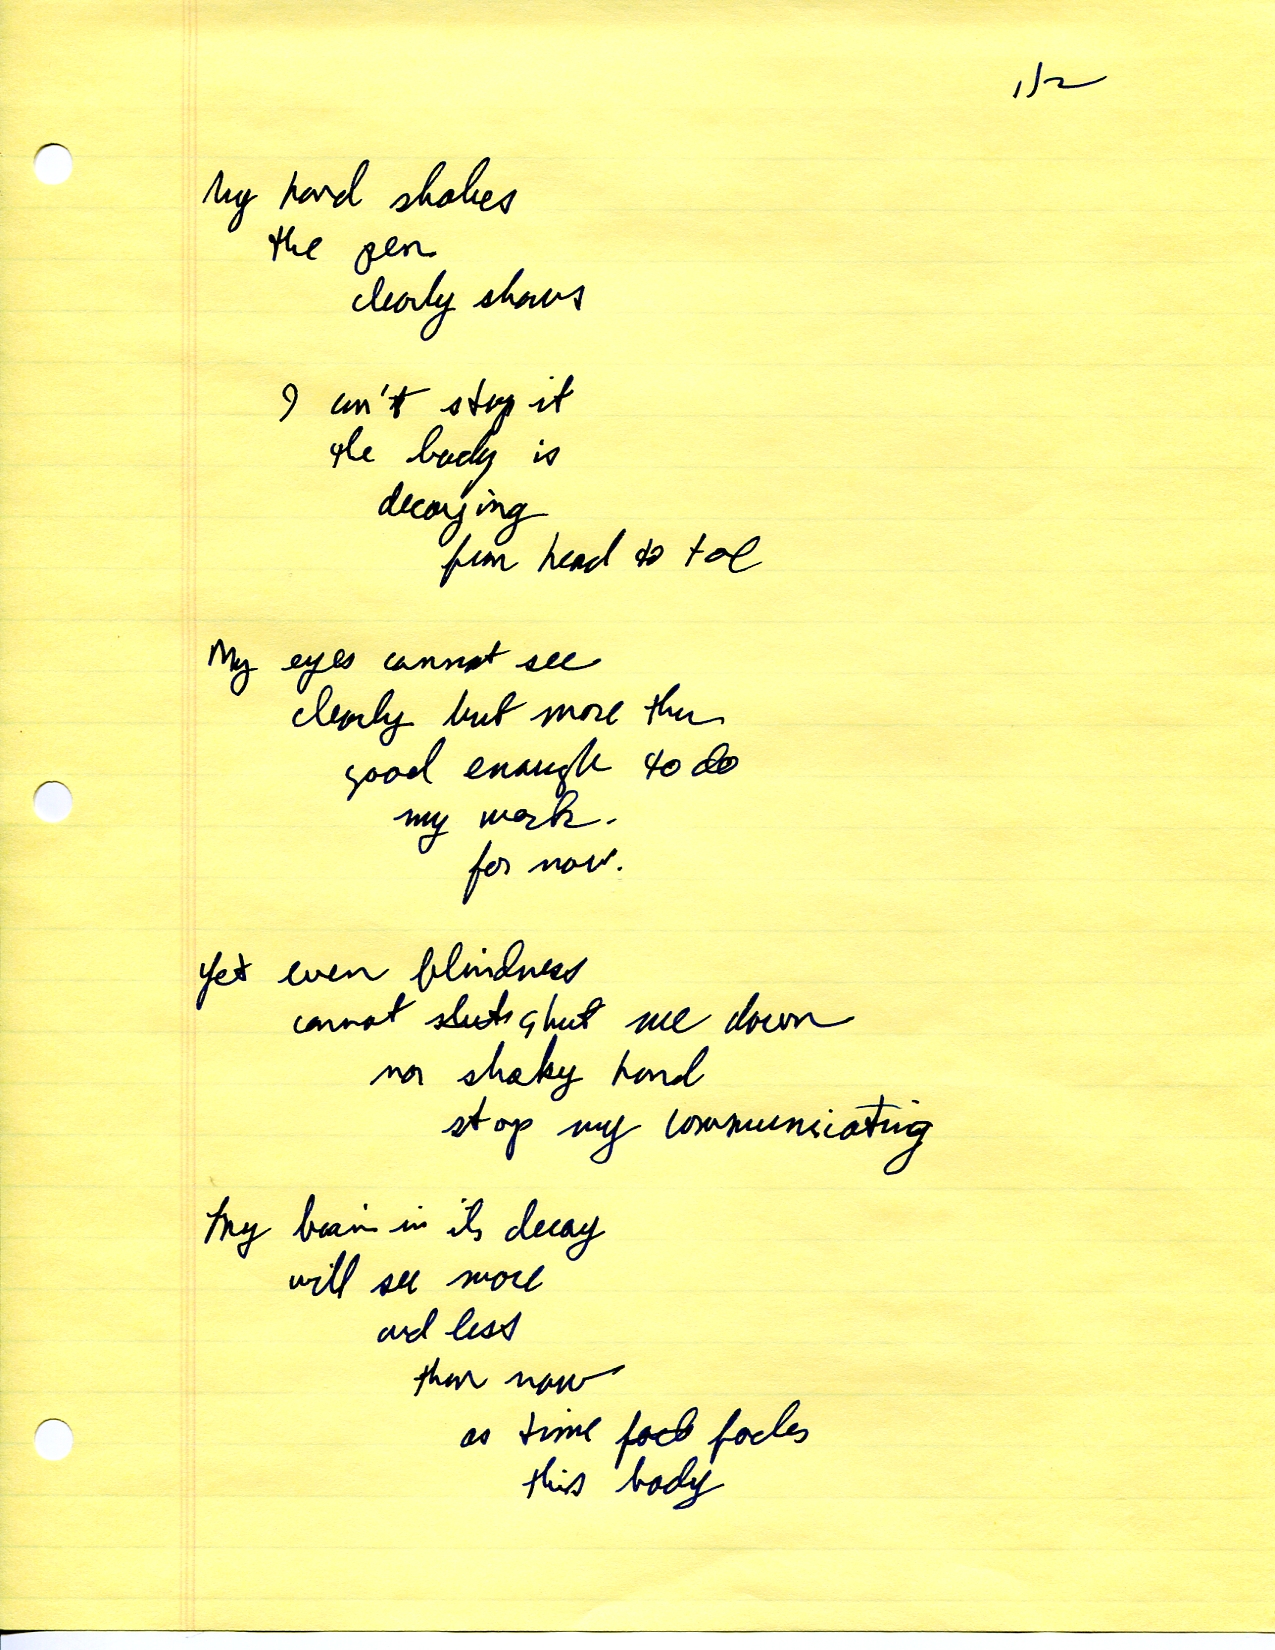 1/2
My hand shakes
the pen
clearly shows
I can't stop it
the body is
decaying
from head to toe
My eyes cannot see
clearly but more than
good enough to do
my work.
for now.
Yet even blindness
cannot shut me down
nor shaky hand
stop my communicating
My brain in its decay
will see more
and less
than now
as time fades
this body